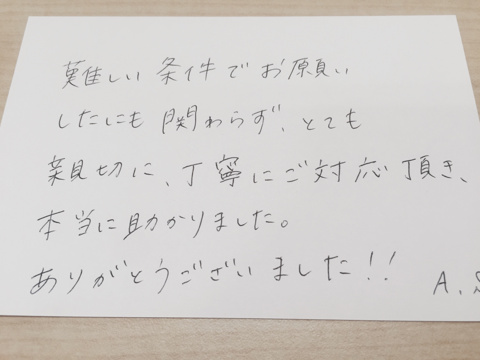 難しい条件でお願い
したにも関わらず、とても
親切に、丁寧にご対応頂き、
本当に助かりました。
ありがとうございました!!
A.S